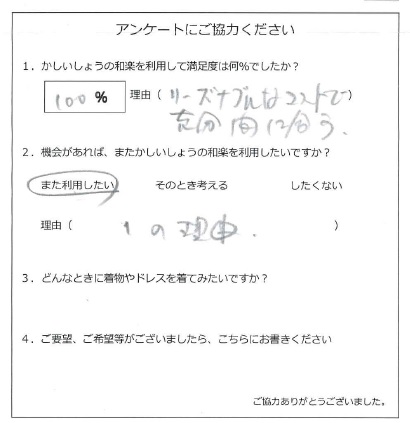 アンケートにご協力ください
1．かしいしょうの和楽を利用して満足度は何%でしたか？
100 % 理由（ リーズナブルなコストで ）
充分間に合う.
2．機会があれば、またかしいしょうの和楽を利用したいですか？
また利用したい そのとき考える したくない
理由（ 1の理由. ）
3．どんなときに着物やドレスを着てみたいですか？
4．ご要望、ご希望等がございましたら、こちらにお書きください
ご協力ありがとうございました。